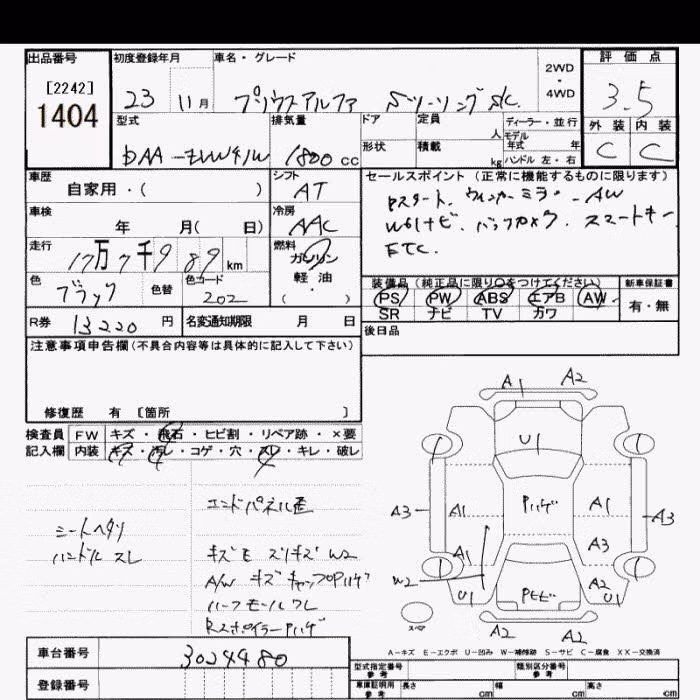 出品番号
[2242]
1404
初度登録年月
23 11月
車名・グレード
プリウスアルファ Sツーリング S/C
2WD
・
4WD
評価点
3.5
外装 内装
C C
型式
DAA-ZVW41W
排気量
1800cc
ドア
形状
定員
人
積載
kg
ディーラー・並行
モデル
年式 年
ハンドル 左・右
車歴
自家用・( )
シフト
AT
車検
年 月( 日)
冷房
AAC
走行
17万7千989km
燃料
ガソリン
軽・油
( )
色
ブラック
色替
色コード
202
R券
13220円
名変通知期限 月 日
セールスポイント(正常に機能するものに限ります)
Pスタート、ウィンカーミラー、AW
W61ナビ、バックカメラ、スマートキー
ETC、
装備品(純正品に限り○をつけてください)
PS PW ABS エアB AW
SR ナビ TV カワ
新車保証書
有・無
後日品
注意事項申告欄(不具合内容等は具体的に記入して下さい)
修復歴 有 [箇所 ]
検査員
記入欄
FW キズ・飛石・ヒビ割・リペア跡・×要
内装 キズ・汚レ・コゲ・穴・スレ・キレ・破レ
シートヘタリ
ハンドル スレ
エンドパネル歪
キズ E スリキズ W2
A/W キズ キャップPハゲ
ハーフモールワレ
RスポイラーPハゲ
A1 A2
U1
A3 A1 Pハゲ A1 A3
A1 A3
W2 U1 A2 U1
Pヒビ
A2 A2
スペア
A-キズ E-エクボ U-凹み W-補修跡 S-サビ C-腐食 XX-交換済
車台番号
3024480
登録番号
型式指定番号
参考
類別区分番号
参考
車庫証明用
参考
長さ cm 幅 cm 高さ cm